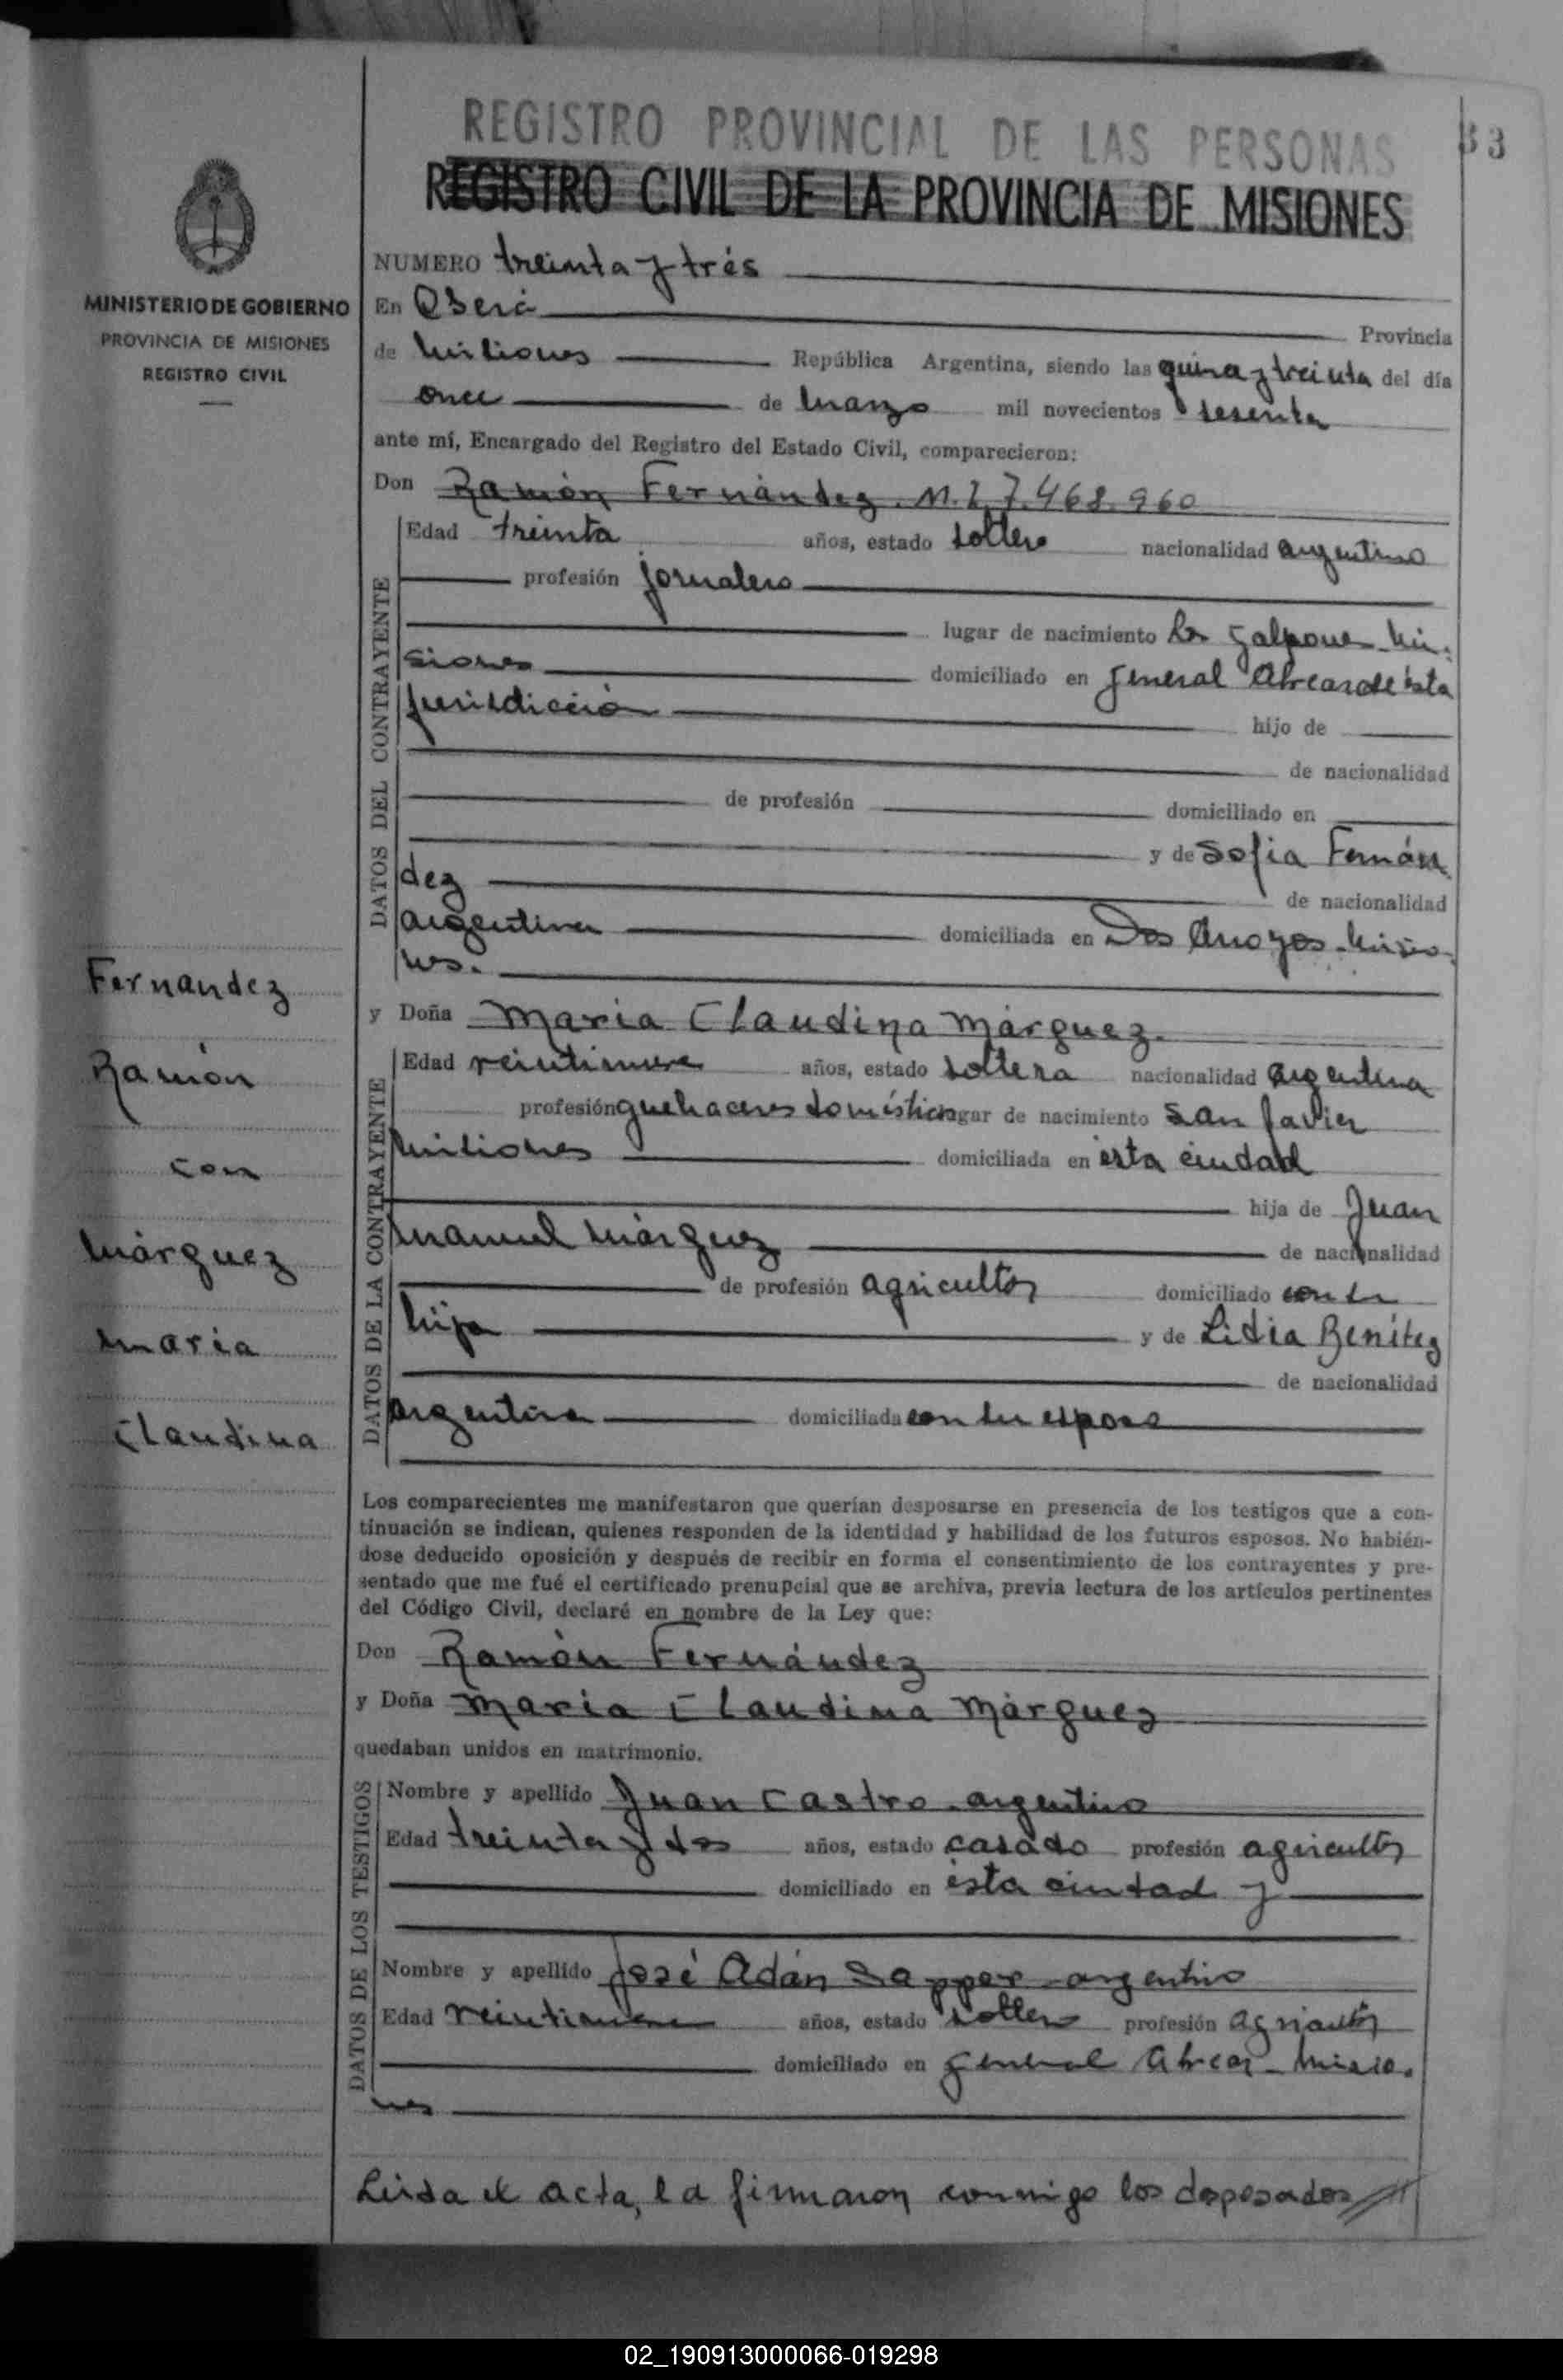 REGISTRO PROVINCIAL DE LAS PERSONAS
33
REGISTRO CIVIL DE LA PROVINCIA DE MISIONES
MINISTERIO DE GOBIERNO
PROVINCIA DE MISIONES
REGISTRO CIVIL
NUMERO treinta y trés
En Oberá Provincia
de Misiones República Argentina, siendo las quince y treinta del día
once de marzo mil novecientos sesenta
ante mí, Encargado del Registro del Estado Civil, comparecieron:
Don Ramón Fernández. M.I. 7.468.960
DATOS DEL CONTRAYENTE
Edad treinta años, estado soltero nacionalidad argentino
profesión jornalero
lugar de nacimiento Los Galpones Mi-
siones domiciliado en General Alvear de ésta
jurisdicción hijo de
de nacionalidad
de profesión domiciliado en
y de Sofia Fernán
dez de nacionalidad
argentina domiciliada en Dos Arroyos. Misio-
nes.
Fernandez
Ramón
con
Márquez
Maria
Claudina
y Doña Maria Claudina Márquez.
DATOS DE LA CONTRAYENTE
Edad veintinueve años, estado soltera nacionalidad argentina
profesión quehaceres domésticos lugar de nacimiento San Javier
Misiones domiciliada en ésta ciudad
hija de Juan
Manuel Márquez de nacionalidad
de profesión agricultor domiciliado con su
hija y de Lidia Benítez
de nacionalidad
argentina domiciliada con su esposo
Los comparecientes me manifestaron que querían desposarse en presencia de los testigos que a con-
tinuación se indican, quienes responden de la identidad y habilidad de los futuros esposos. No habién-
dose deducido oposición y después de recibir en forma el consentimiento de los contrayentes y pre-
sentado que me fué el certificado prenupcial que se archiva, previa lectura de los artículos pertinentes
del Código Civil, declaré en nombre de la Ley que:
Don Ramón Fernández
y Doña Maria Claudina Márquez
quedaban unidos en matrimonio.
DATOS DE LOS TESTIGOS
Nombre y apellido Juan Castro. argentino
Edad treinta y dos años, estado casado profesión agricultor
domiciliado en ésta ciudad y
Nombre y apellido José Adán Sapper argentino
Edad veintinueve años, estado soltero profesión agricultor
domiciliado en General Alvear - Misio.
nes
Leida el acta, la firmaron conmigo los desposados
02_190913000066-019298